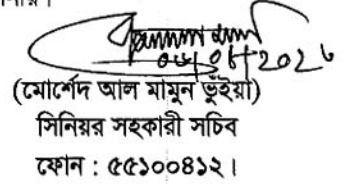 ০৮/০৮/২০২৮
(মোর্শেদ আল মামুন ভুঁইয়া)
সিনিয়র সহকারী সচিব
ফোন : ৫৫১০০৪১২।